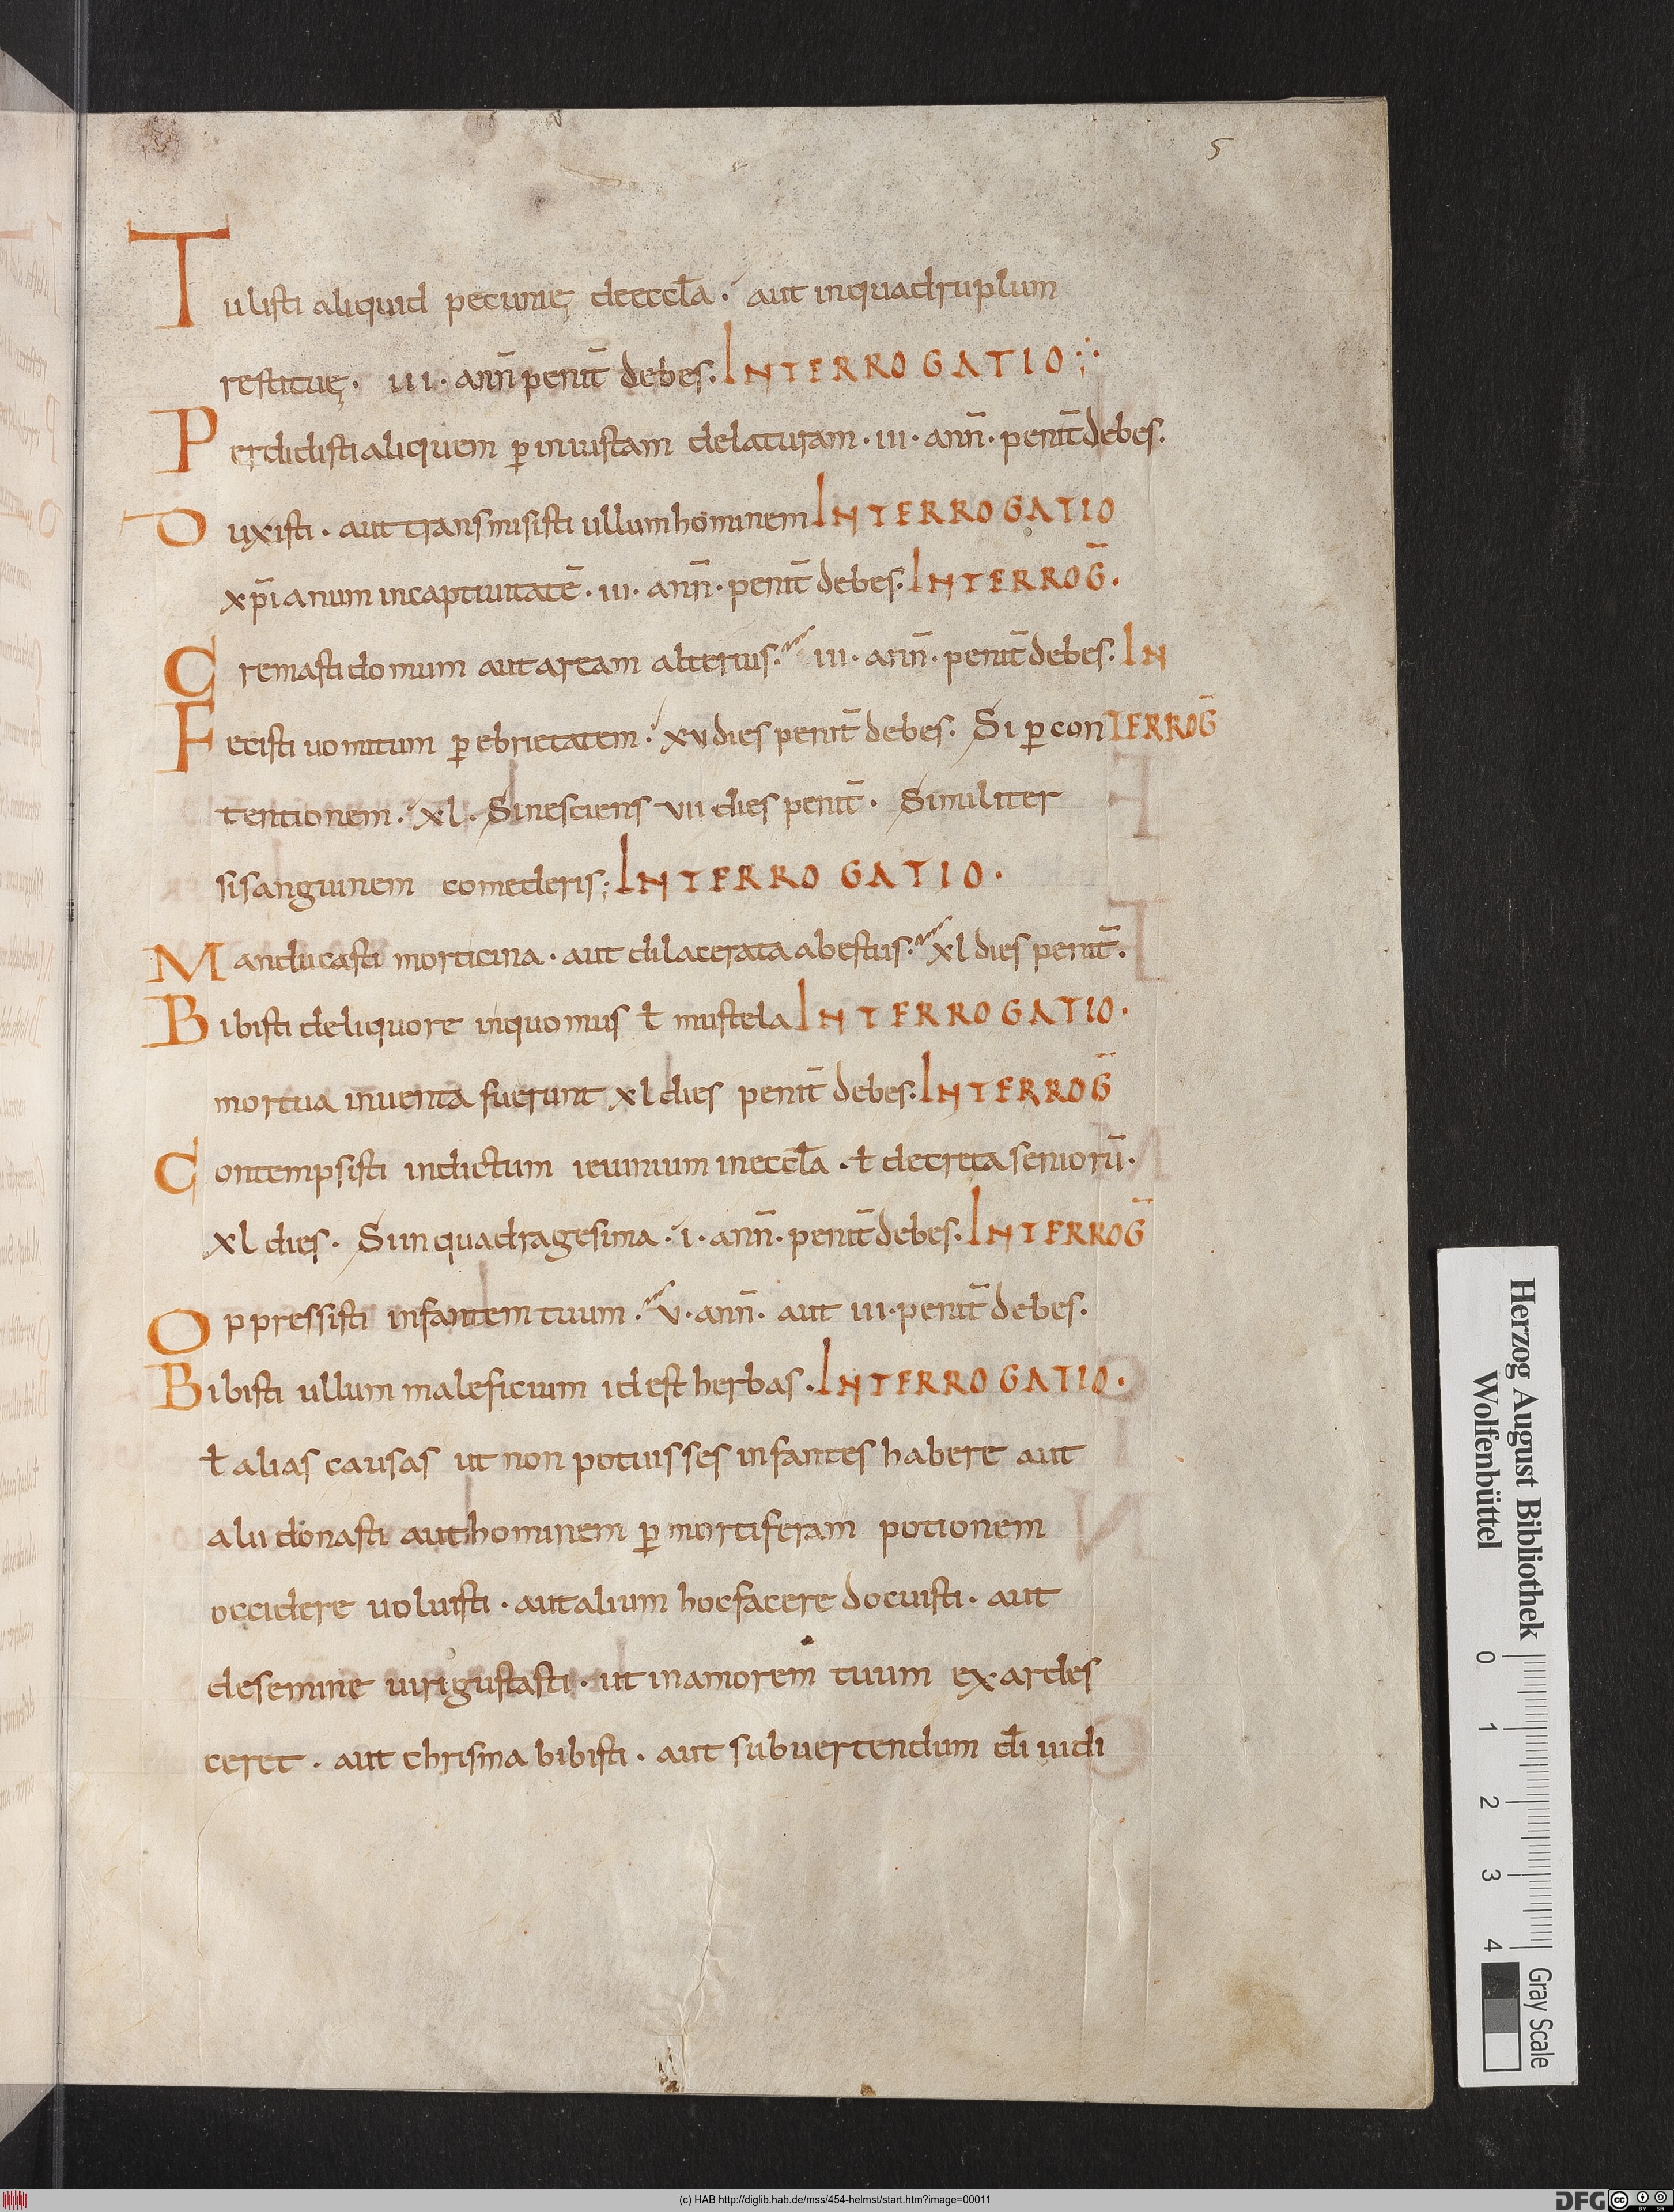 5
Tulisti aliquid pecunię deeccła · aut inquadruplum
restituę · III · anñ penit̄ debes. INTERROGATIO
Perdidisti aliquem ꝑ iniustam delaturam · III · anñ · penit̄ debes.
Duxisti · aut transmisisti ullum hominem INTERROGATIO
xp̄ianum incaptiuitatē · III · anñ · penit̄ debes. INTERROḠ.
Cremasti domum aut aream alterius. III · anñ · penit̄ debes. IN
Fecisti uomitum ꝑ ebrietatem · xv dies penit̄ debes. Si ꝑ conTERROḠ
tentionem · xl · Si nesciens VII dies penit̄ · Similiter
si sanguinem comederis; INTERROGATIO.
Manducasti morticina · aut dilacerata abestiis · xl dies penit̄.
Bibisti deliquore inquo mus ł mustela INTERROGATIO.
mortua inuenta fuerunt xl dies penit̄ debes. INTERROḠ
Contempsisti indictum ieiunium ineccła · ł decreta seniorū ·
xl dies · Si in quadragesima · I · anñ · penit̄ debes. INTERROḠ
Oppressisti infantem tuum · V · anñ · aut III · penit̄ debes.
Bibisti ullum maleficium id est herbas · INTERROGATIO.
ł alias causas ut non potuisses infantes habere aut
alii donasti aut hominem ꝑ mortiferam potionem
occidere uoluisti · aut alium hoc facere docuisti · aut
desemine uiri gustasti · ut inamorem tuum exardes
ceret · aut chrisma bibisti · aut subuertendum dī iudi
Herzog August Bibliothek
Wolfenbüttel
0 1 2 3 4
Gray Scale
(c) HAB http://diglib.hab.de/mss/454-helmst/start.htm?image=00011
DFG